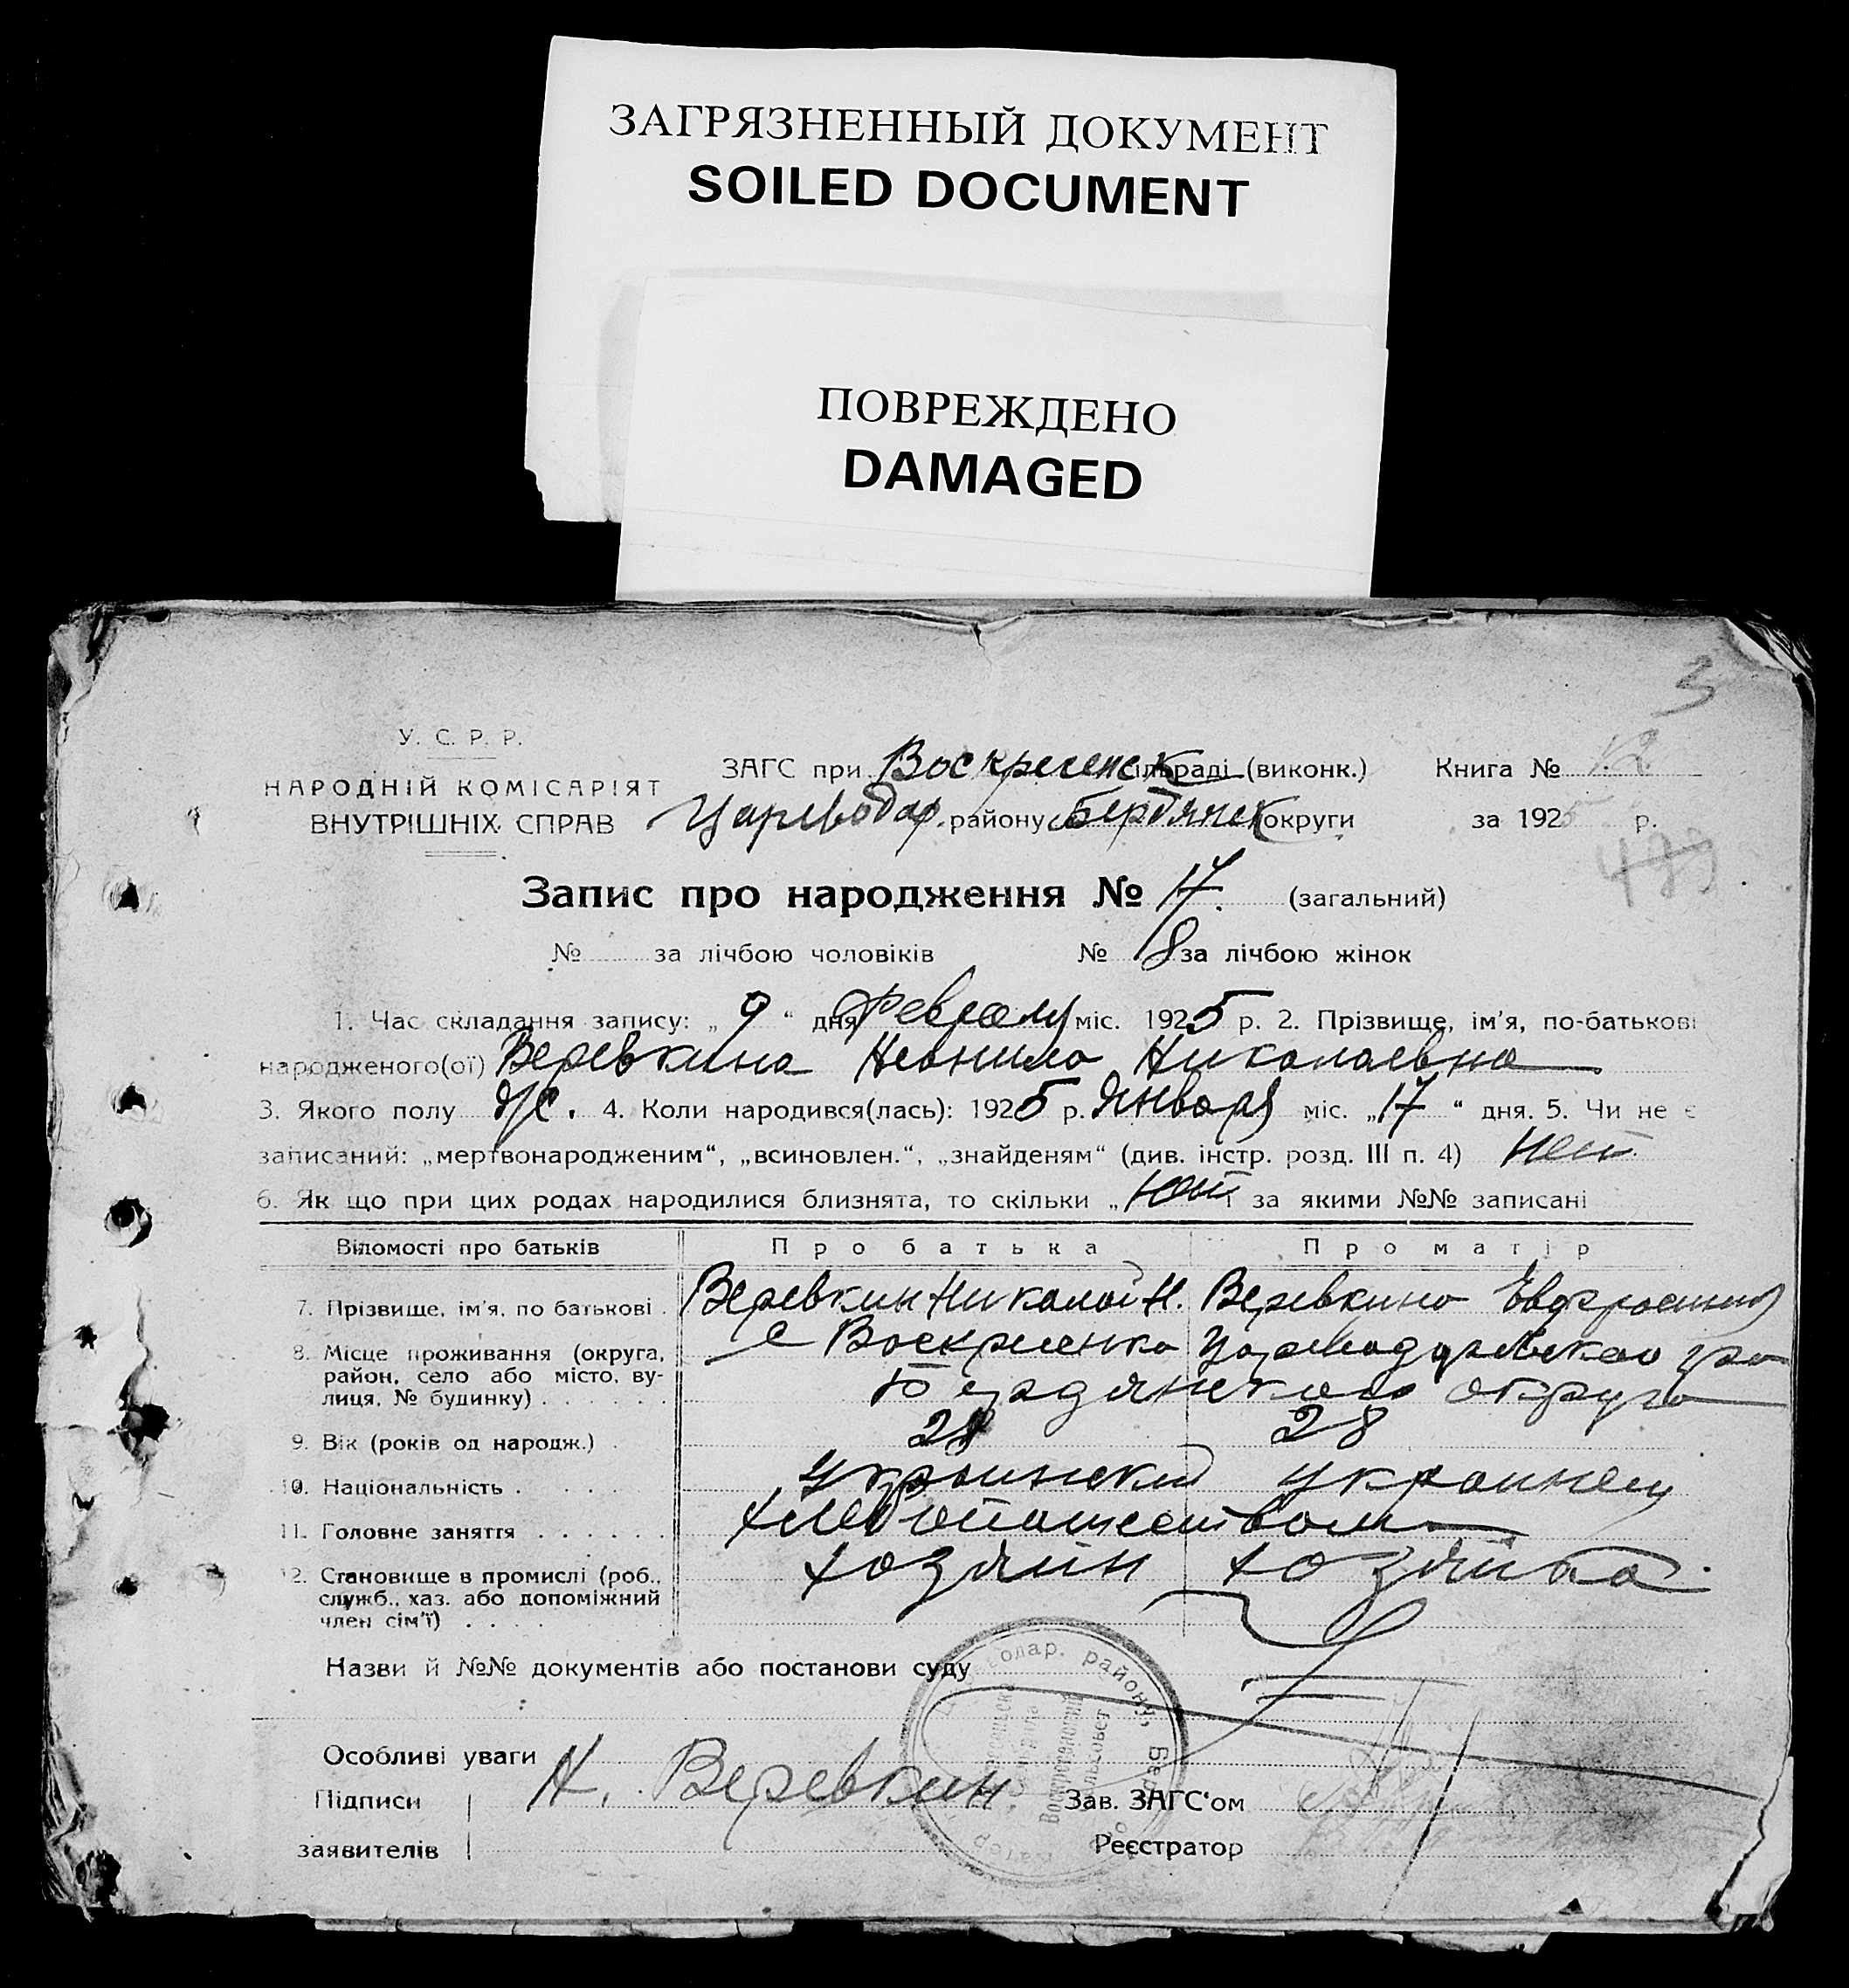 ЗАГРЯЗНЕННЫЙ ДОКУМЕНТ
SOILED DOCUMENT
ПОВРЕЖДЕНО
DAMAGED
3
У. С. Р. Р.
НАРОДНІЙ КОМІСАРІЯТ
ВНУТРІШНІХ СПРАВ
ЗАГС при Воскресенск сільраді (виконк.) Книга № 12.
Цареводар. району Бердянск округи за 1925 р.
Запис про народження № 17. (загальний)
№ за лічбою чоловіків № 8 за лічбою жінок
1. Час складання запису: „ 9 “ дня Февраля міс. 1925 р. 2. Прізвище, ім'я, по-батькові
народженого(ої) Веревкина Неонила Николаевна
3. Якого полу ж. 4. Коли народився(лась): 1925 р. Января міс. „17“ дня. 5. Чи не є
записаний: „мертвонародженим“, „всиновлен.“, „знайденям“ (див. інстр. розд. III п. 4) нет
6. Як що при цих родах народилися близнята, то скільки „ нет і за якими №№ записані
Відомості про батьків Про батька Про матір
7. Прізвище, ім'я, по батькові Веревкин Николай Н. Веревкина Евфросиния
8. Місце проживання (округа, район, село або місто, вулиця, № будинку) с Воскресенка Цареводаровского
Бердянского округа
9. Вік (років од народж.) 28 28
10. Національність украинский украинец
11. Головне заняття хлебопашеством
12. Становище в промислі (роб., служб., хаз. або допоміжний член сім'ї) хозяин хозяйка
Назви й №№ документів або постанови суду
Особливі уваги
Підписи заявителів Н. Веревкин
Зав. ЗАГС'ом
Реєстратор